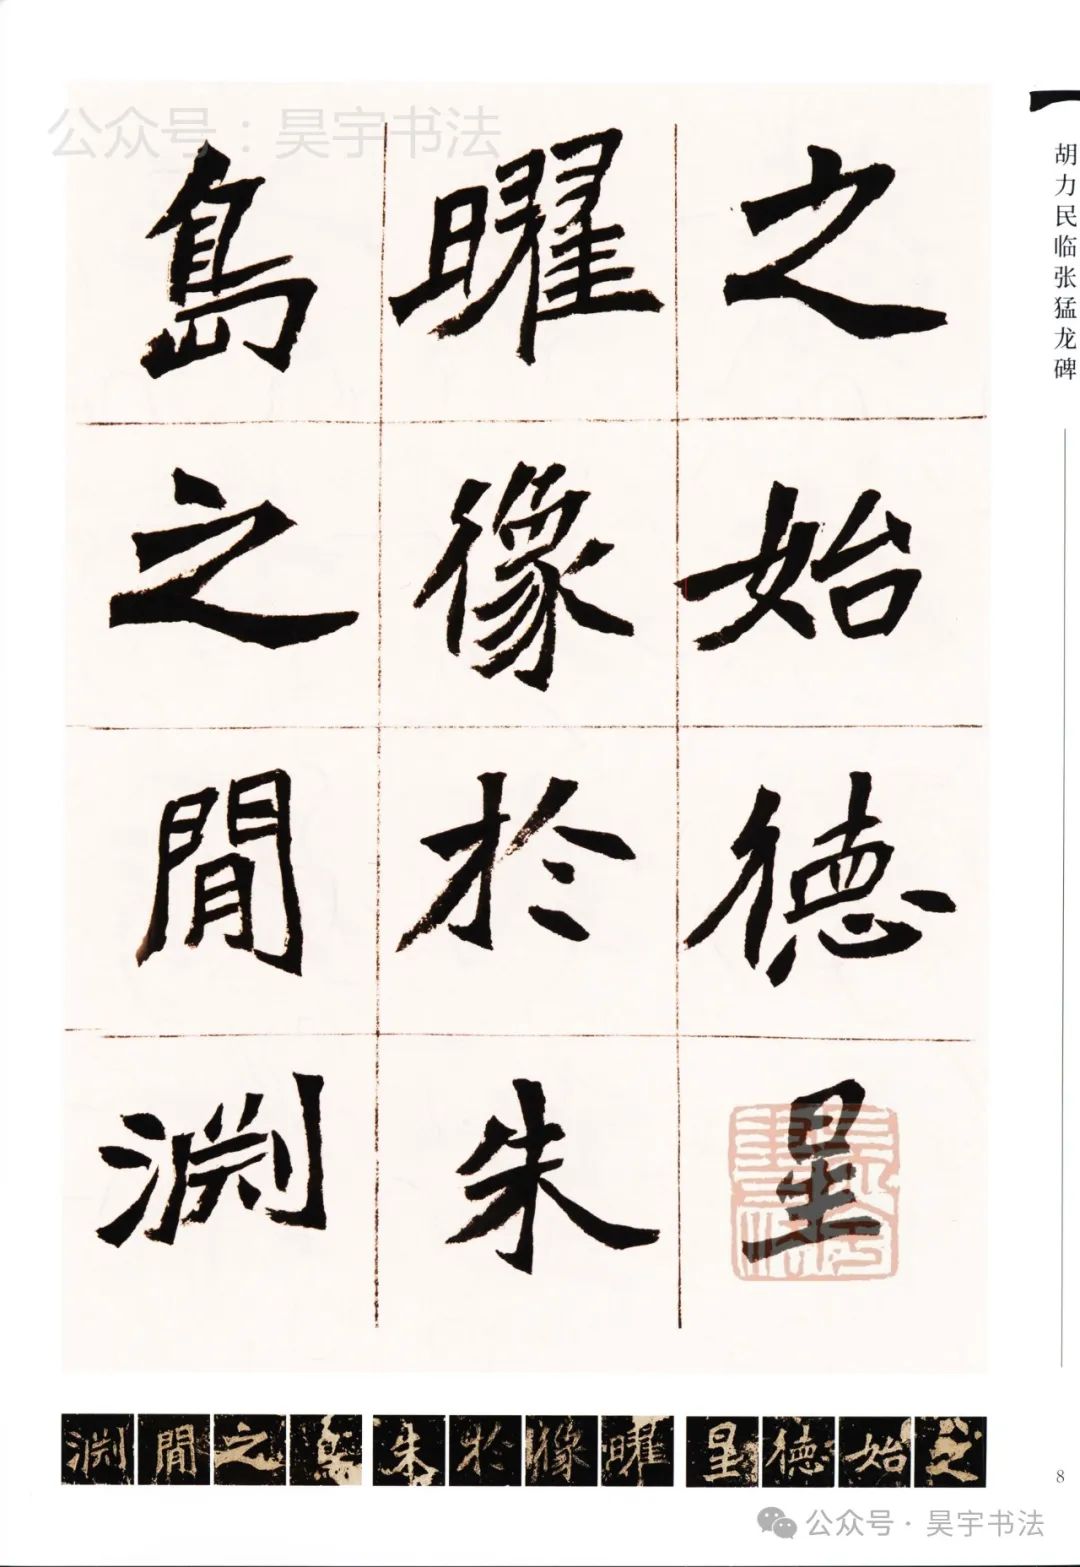 公众号：昊宇书法
胡力民临张猛龙碑
之始德星
曜像於朱
鳥之閒渊
渊閒之鳥朱於像曜星德始之
8
公众号·昊宇书法